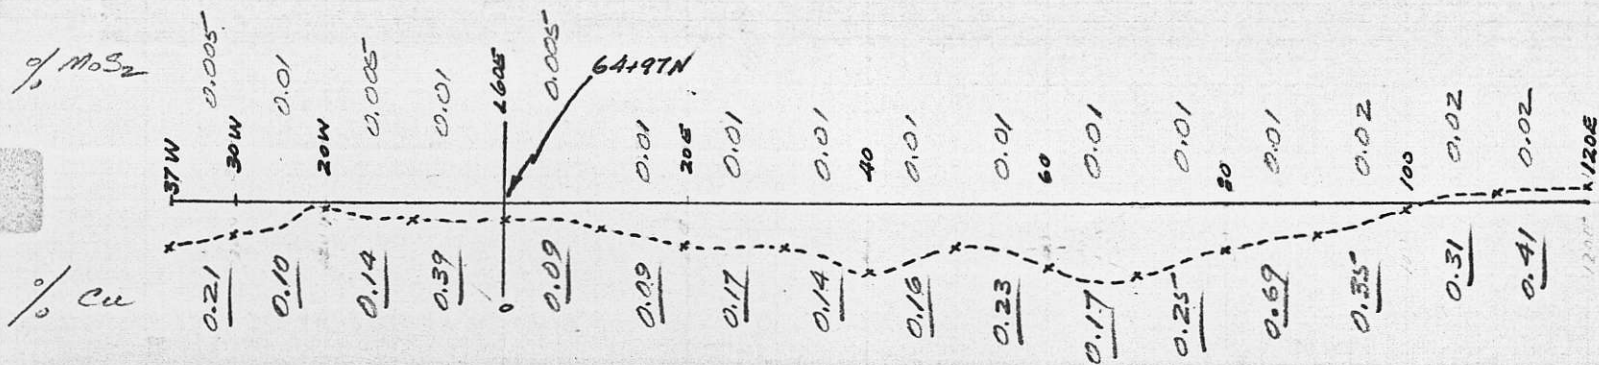 % MoS2
0.005
0.01
0.005
0.01
0.005
0.01
0.01
0.01
0.01
0.01
0.01
0.01
0.01
0.02
0.02
0.02
64+97N
37W
30W
20W
2605
20E
40
60
80
100
120E
0
% Cu
0.21
0.10
0.14
0.39
0.09
0.09
0.17
0.14
0.16
0.23
0.17
0.25
0.69
0.35
0.31
0.41